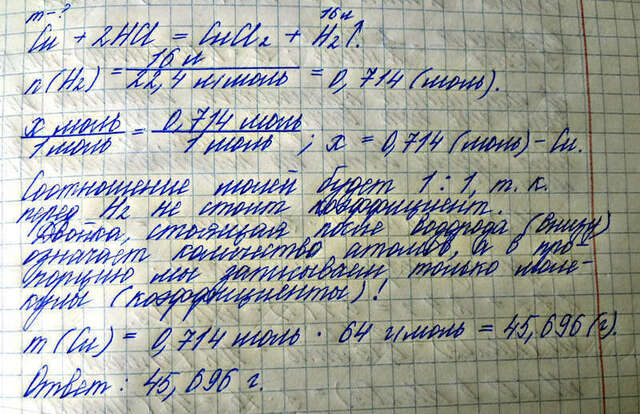 m – ?
16 л
Cu + 2HCl = CuCl₂ + H₂↑.
n(H₂) = 16 л / 22,4 л/моль = 0,714 (моль).
x моль / 1 моль = 0,714 моль / 1 моль ; x = 0,714 (моль) – Cu.
Соотношение молей будет 1 : 1, т. к.
перед H₂ не стоит коэффициент.
Двойка, стоящая после водрода (внизу)
означает количество атомов, а в про-
порцию мы записываем только моле-
кулы (коэффициенты)!
m(Cu) = 0,714 моль · 64 г/моль = 45,696 (г).
Ответ: 45,696 г.